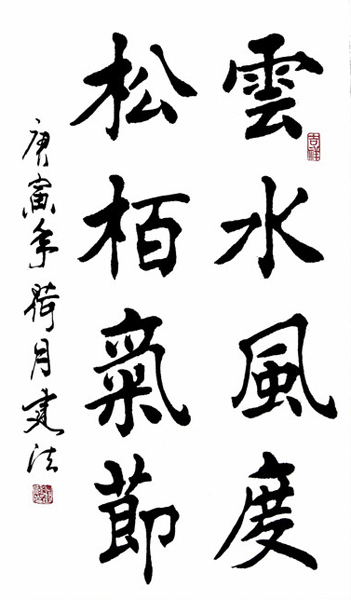 吉祥
雲水風度
松柏氣節
庚寅年荷月建法